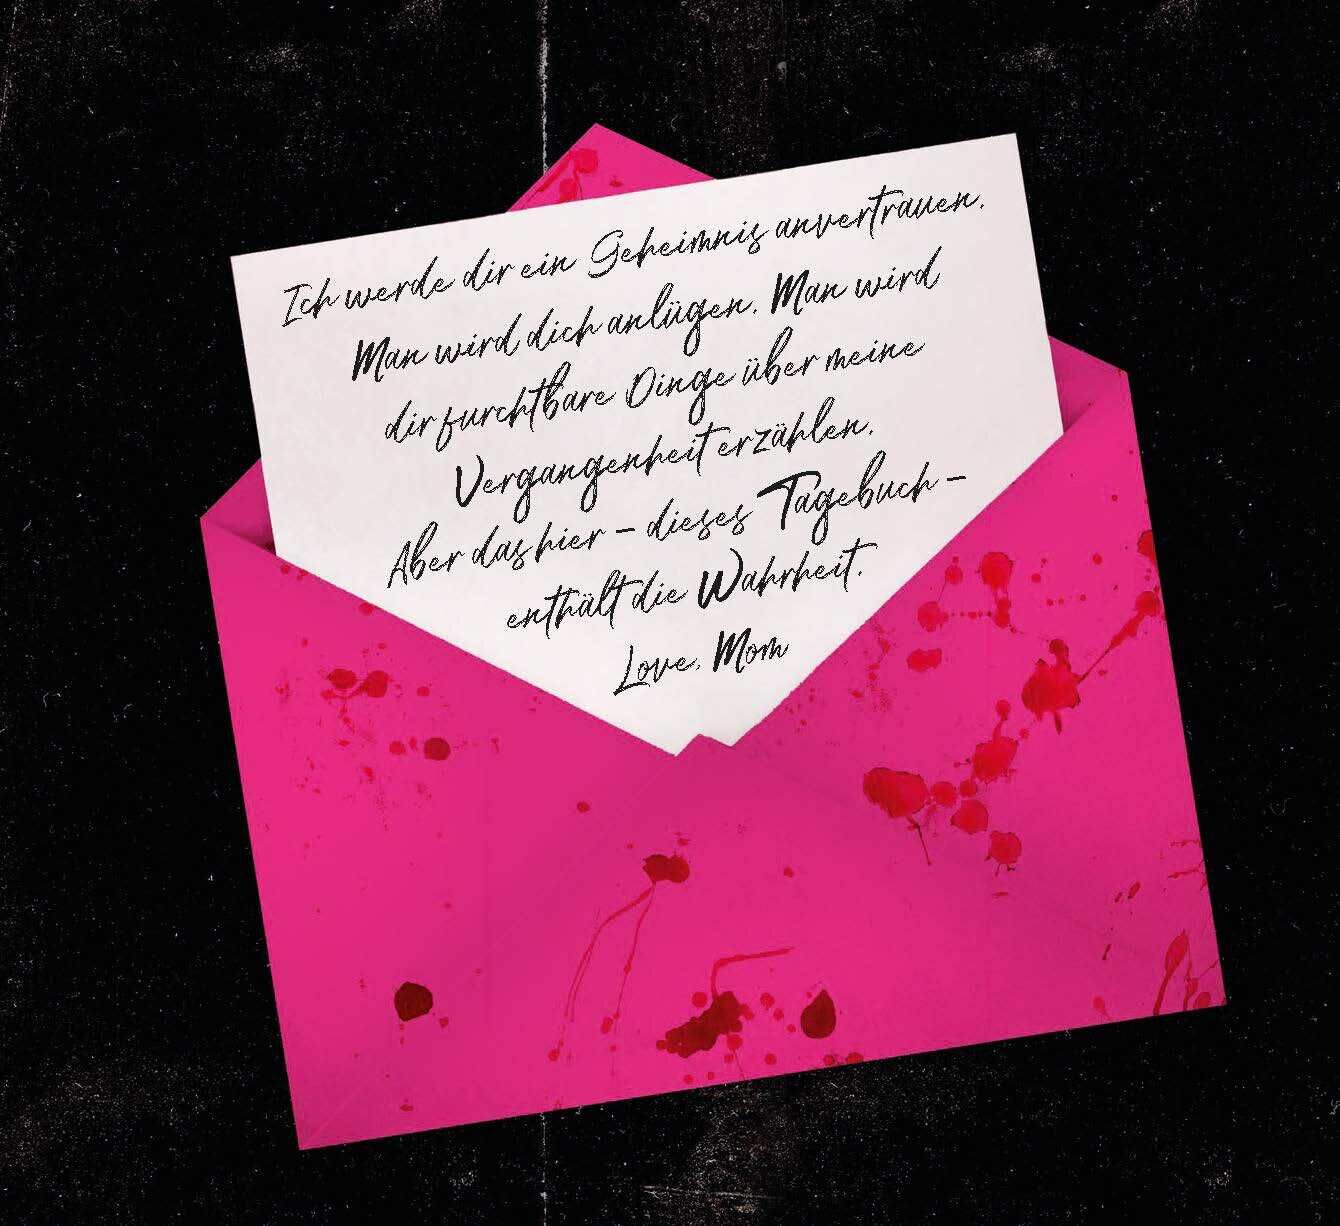 Ich werde dir ein Geheimnis anvertrauen.
Man wird dich anlügen. Man wird
dir furchtbare Dinge über meine
Vergangenheit erzählen.
Aber das hier – dieses Tagebuch –
enthält die Wahrheit.
Love, Mom